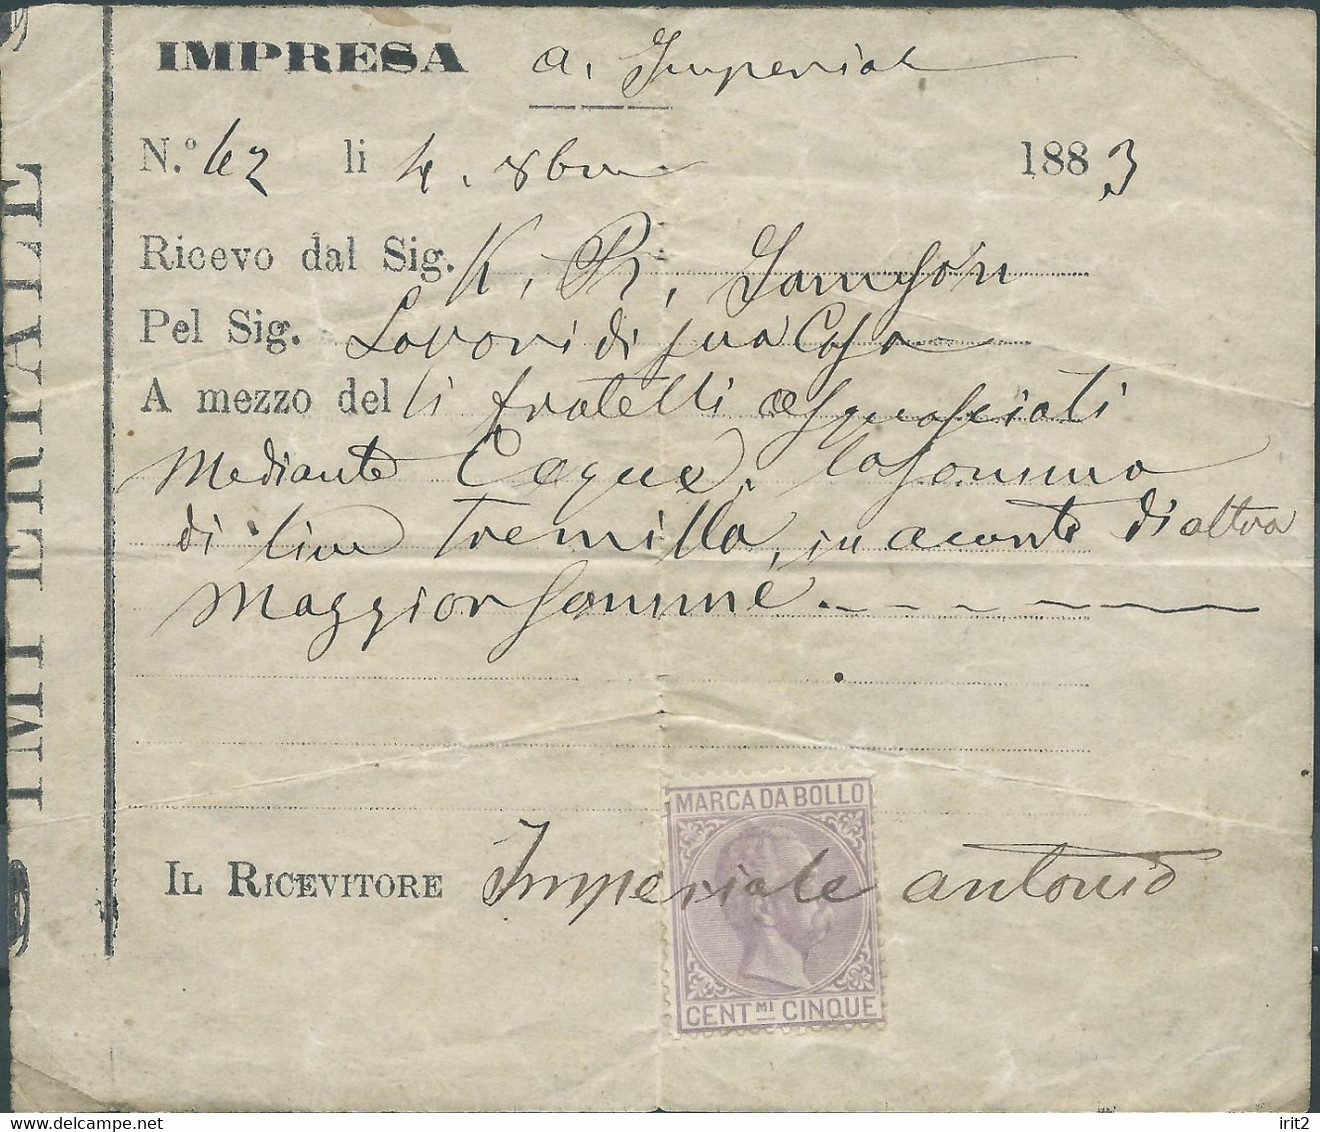 IMPERIALE
IMPRESA a. Imperiale
N.º 42 li 4. 8bre 1883
Ricevo dal Sig. K. Pr. Samson
Pel Sig. Lavori di sua Casa
A mezzo del li fratelli
Mediante la somma
di lire tremilla, in aconto di altra
Maggior somme.
MARCA DA BOLLO
IL RICEVITORE Imperiale antonio
CENT.MI CINQUE
www.delcampe.net
irit2